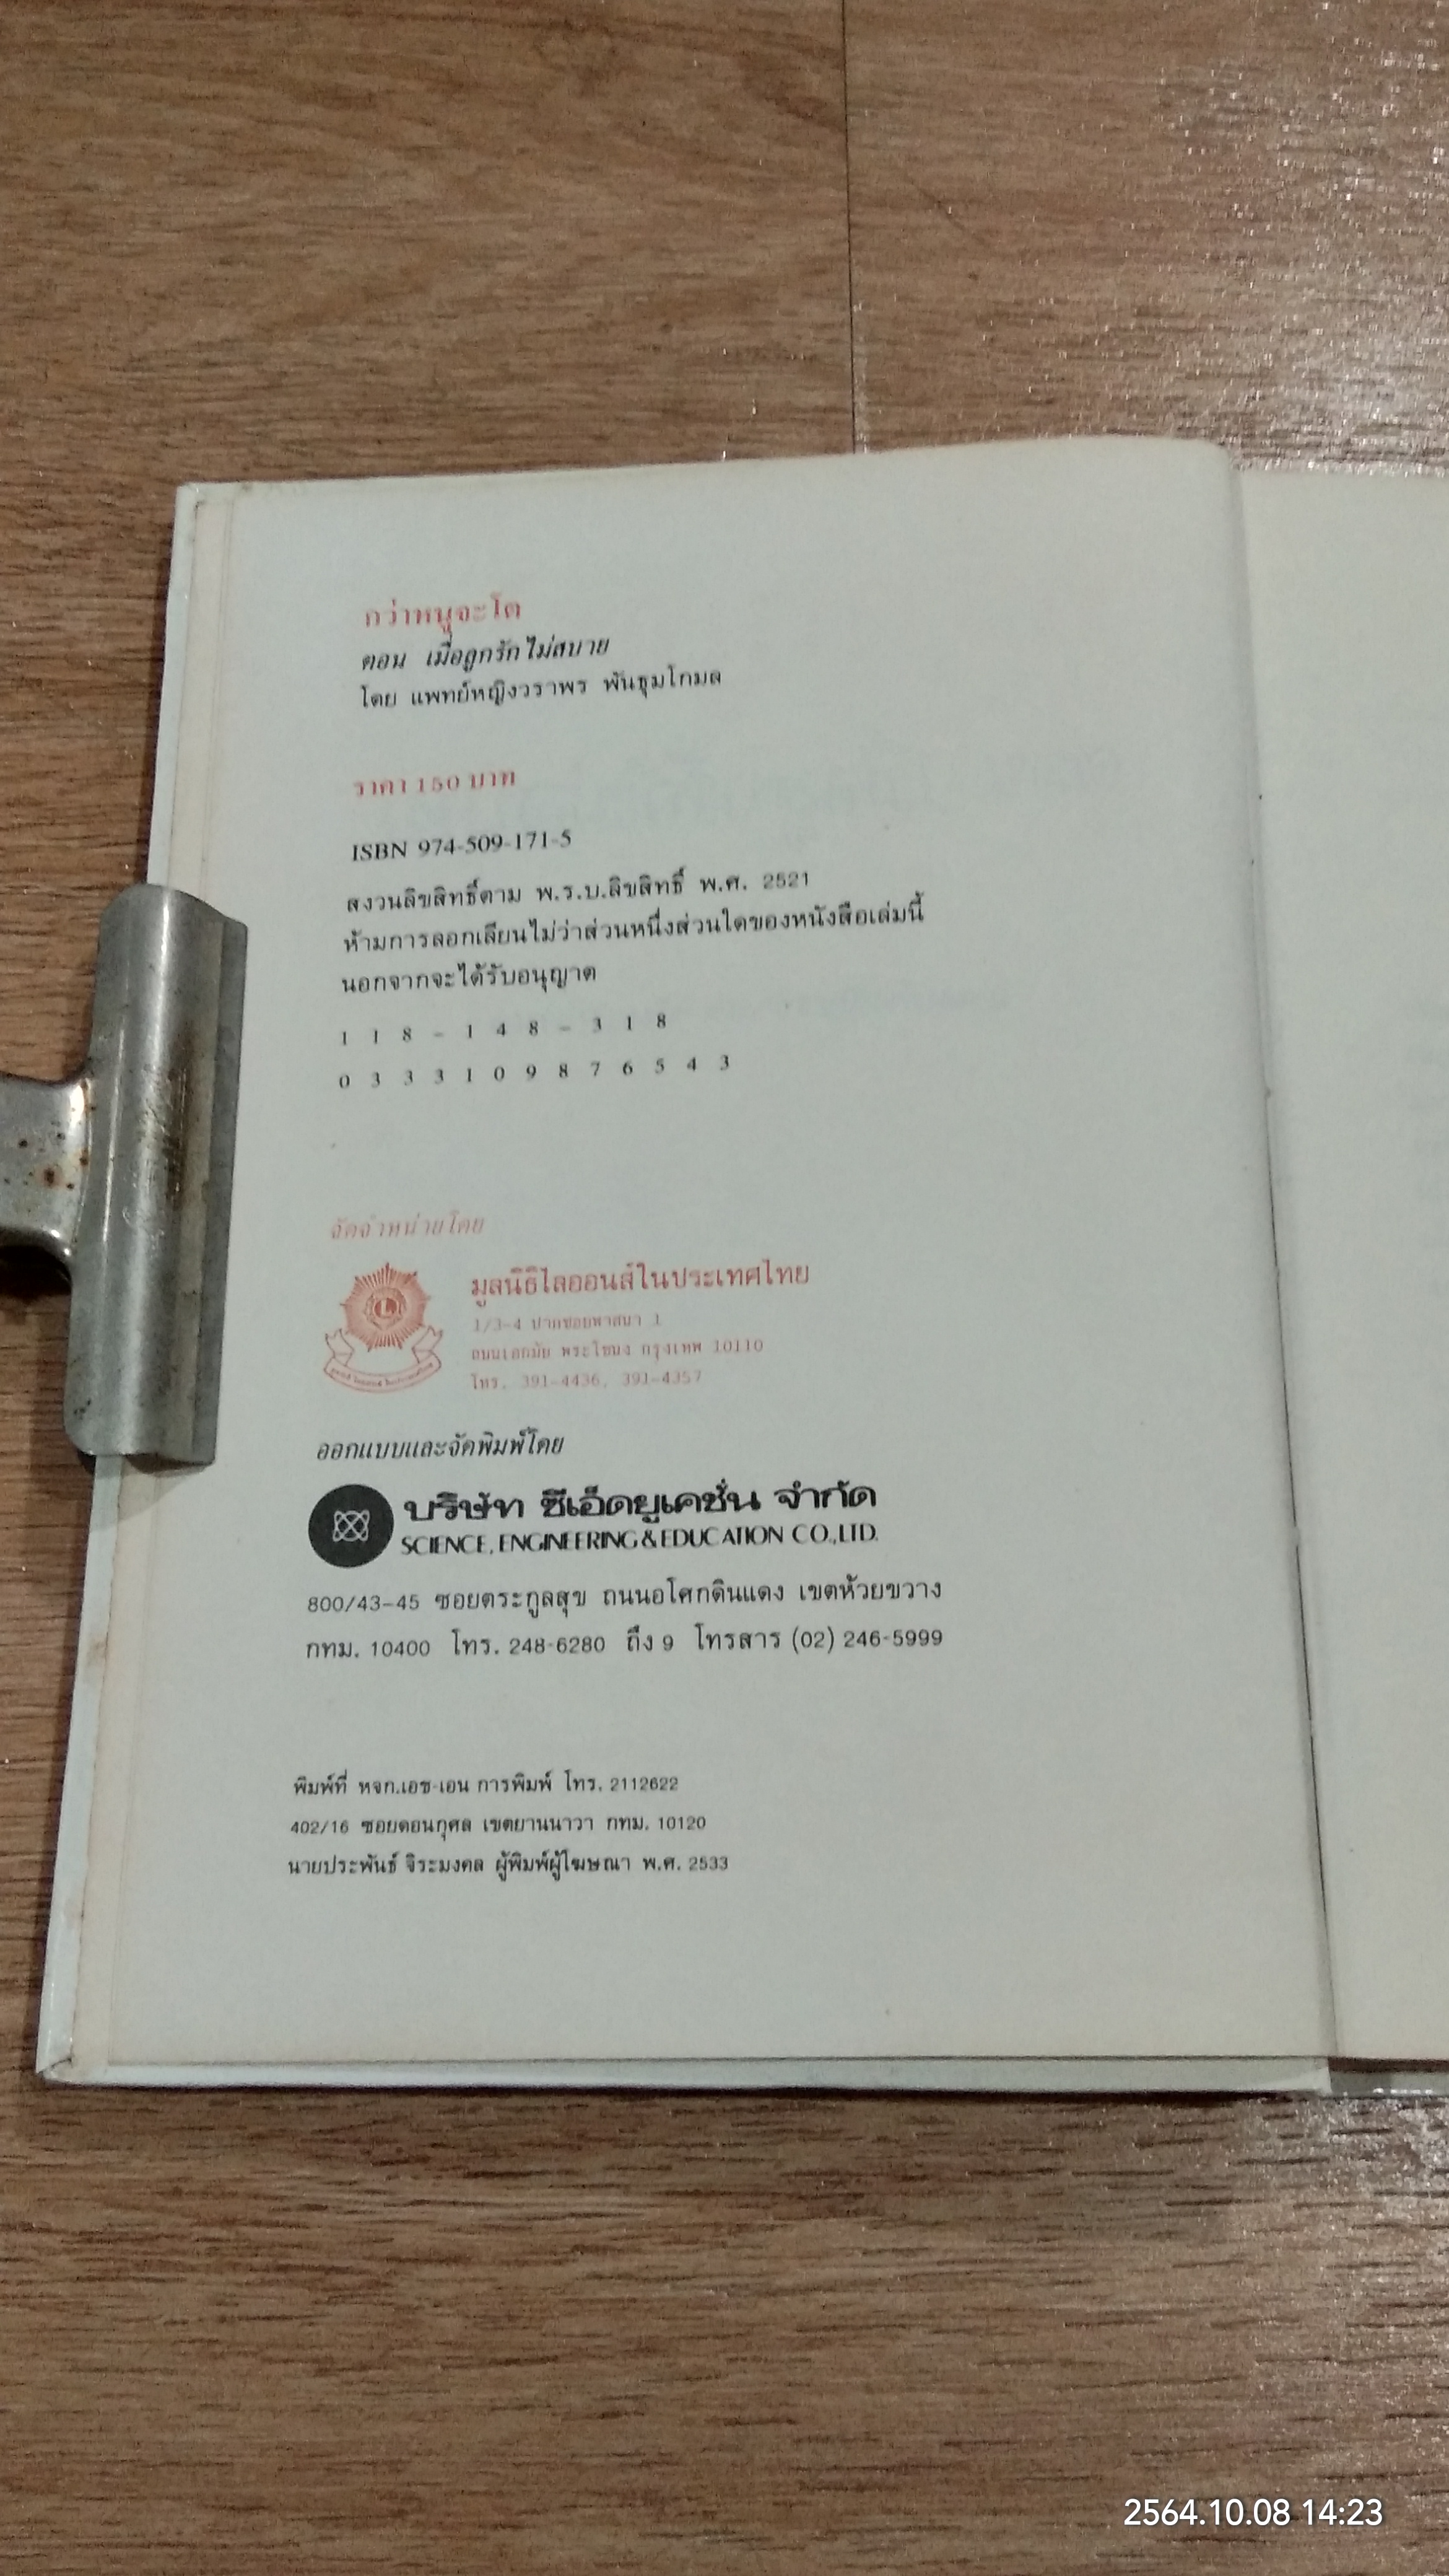 กว่าหนูจะโต
ตอน เมื่อลูกรักไม่สบาย
โดย แพทย์หญิงวราพร พันธุมโกมล
ราคา 150 บาท
ISBN 974-509-171-5
สงวนลิขสิทธิ์ตาม พ.ร.บ.ลิขสิทธิ์ พ.ศ. 2521
ห้ามการลอกเลียนไม่ว่าส่วนหนึ่งส่วนใดของหนังสือเล่มนี้
นอกจากจะได้รับอนุญาต
1 1 8 - 1 4 8 - 3 1 8
0 3 3 3 1 0 9 8 7 6 5 4 3
จัดจำหน่ายโดย
มูลนิธิไลออนส์ในประเทศไทย
1/3-4 ปากซอยพาสนา 1
ถนนเอกมัย พระโขนง กรุงเทพ 10110
โทร. 391-4436, 391-4357
ออกแบบและจัดพิมพ์โดย
บริษัท ซีเอ็ดยูเคชั่น จำกัด
SCIENCE, ENGINEERING & EDUCATION CO.,LTD.
800/43-45 ซอยตระกูลสุข ถนนอโศกดินแดง เขตห้วยขวาง
กทม. 10400 โทร. 248-6280 ถึง 9 โทรสาร (02) 246-5999
พิมพ์ที่ หจก.เอช-เอน การพิมพ์ โทร. 2112622
402/16 ซอยดอนกุศล เขตยานนาวา กทม. 10120
นายประพันธ์ จิระมงคล ผู้พิมพ์ผู้โฆษณา พ.ศ. 2533
2564.10.08 14:23